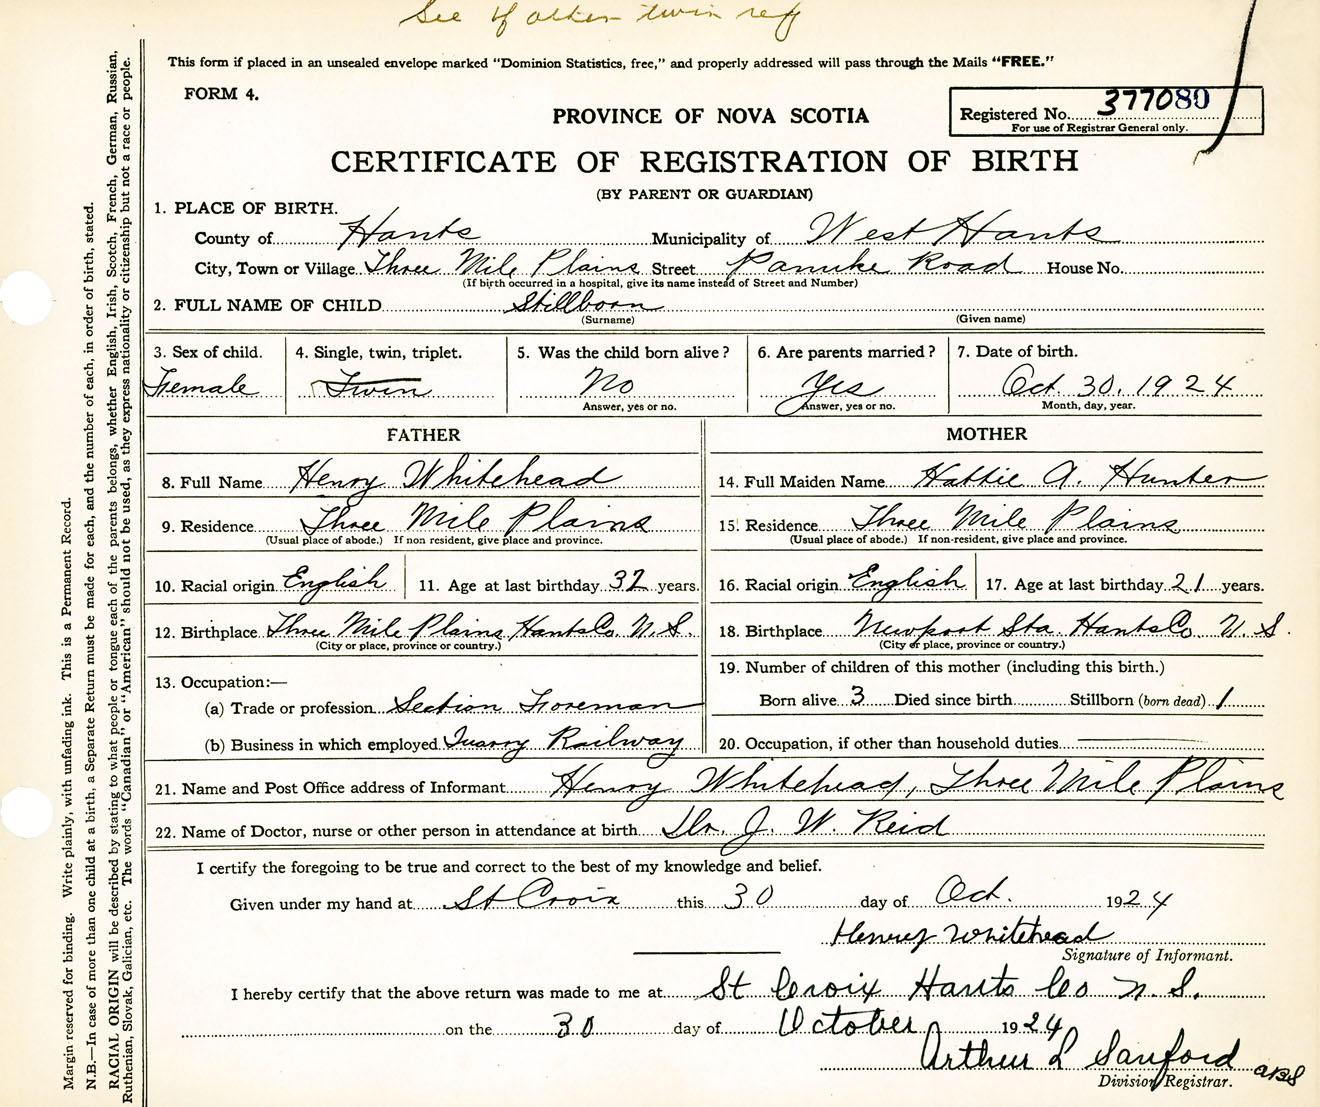 See if other twin reg
This form if placed in an unsealed envelope marked "Dominion Statistics, free," and properly addressed will pass through the Mails "FREE."
FORM 4.
PROVINCE OF NOVA SCOTIA
Registered No. 377080
For use of Registrar General only.
CERTIFICATE OF REGISTRATION OF BIRTH
(BY PARENT OR GUARDIAN)
1. PLACE OF BIRTH.
County of Hants Municipality of West Hants
City, Town or Village Three Mile Plains Street Panuke Road House No.
(If birth occurred in a hospital, give its name instead of Street and Number)
2. FULL NAME OF CHILD Stillborn
(Surname) (Given name)
3. Sex of child. 4. Single, twin, triplet. 5. Was the child born alive? 6. Are parents married? 7. Date of birth.
Female Twin No Yes Oct. 30. 1924
Answer, yes or no. Answer, yes or no. Month, day, year.
FATHER MOTHER
8. Full Name Henry Whitehead 14. Full Maiden Name Hattie A. Hunter
9. Residence Three Mile Plains 15. Residence Three Mile Plains
(Usual place of abode.) If non resident, give place and province. (Usual place of abode.) If non-resident, give place and province.
10. Racial origin English 11. Age at last birthday 32 years. 16. Racial origin English 17. Age at last birthday 21 years.
12. Birthplace Three Mile Plains Hants Co N. S. 18. Birthplace Newport Sta. Hants Co N. S.
(City or place, province or country.) (City or place, province or country.)
13. Occupation:— 19. Number of children of this mother (including this birth.)
(a) Trade or profession Section Foreman Born alive 3 Died since birth Stillborn (born dead) 1
(b) Business in which employed Quarry Railway 20. Occupation, if other than household duties
21. Name and Post Office address of Informant Henry Whitehead, Three Mile Plains
22. Name of Doctor, nurse or other person in attendance at birth Dr. J. W. Reid
I certify the foregoing to be true and correct to the best of my knowledge and belief.
Given under my hand at St Croix this 30 day of Oct. 1924
Henry Whitehead
Signature of Informant.
I hereby certify that the above return was made to me at St Croix Hants Co N. S.
on the 30 day of October 1924
Arthur L Sanford
Division Registrar.
Margin reserved for binding. Write plainly, with unfading ink. This is a Permanent Record.
N.B.—In case of more than one child at a birth, a Separate Return must be made for each, and the number of each, in order of birth, stated.
RACIAL ORIGIN will be described by stating to what people or tongue each of the parents belongs, whether English, Irish, Scotch, French, German, Russian,
Ruthenian, Slovak, Galician, etc. The words "Canadian" or "American" should not be used, as they express nationality or citizenship but not a race or people.